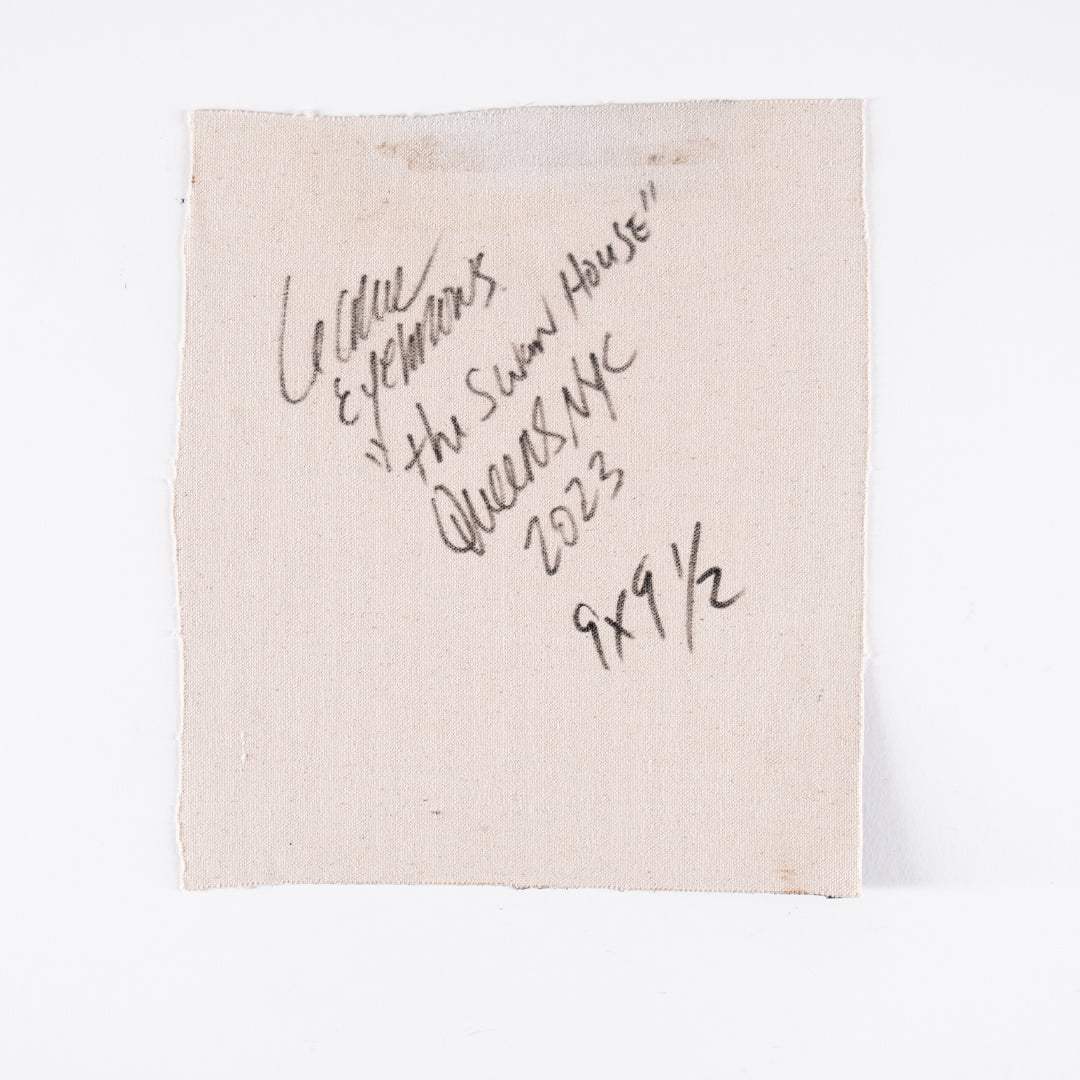 Eyebrows
"the Swan House"
Queens, NYC
2023
9x9 1/2